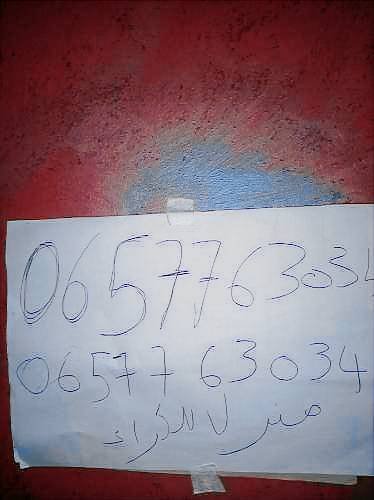 0657763034
0657763034
منزل للكراء